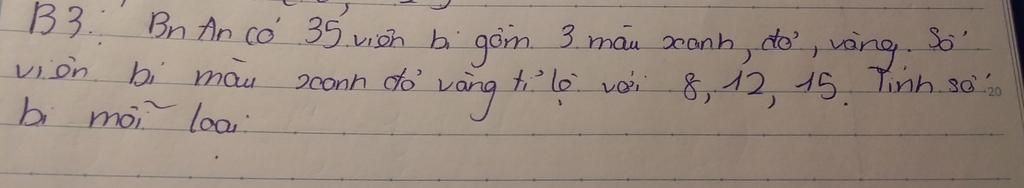 B3: Bn An có 35 viên bi gồm 3 màu xanh, đỏ, vàng. Số
viên bi màu xanh đỏ vàng tỉ lệ với 8, 12, 15. Tính số
bi mỗi loại